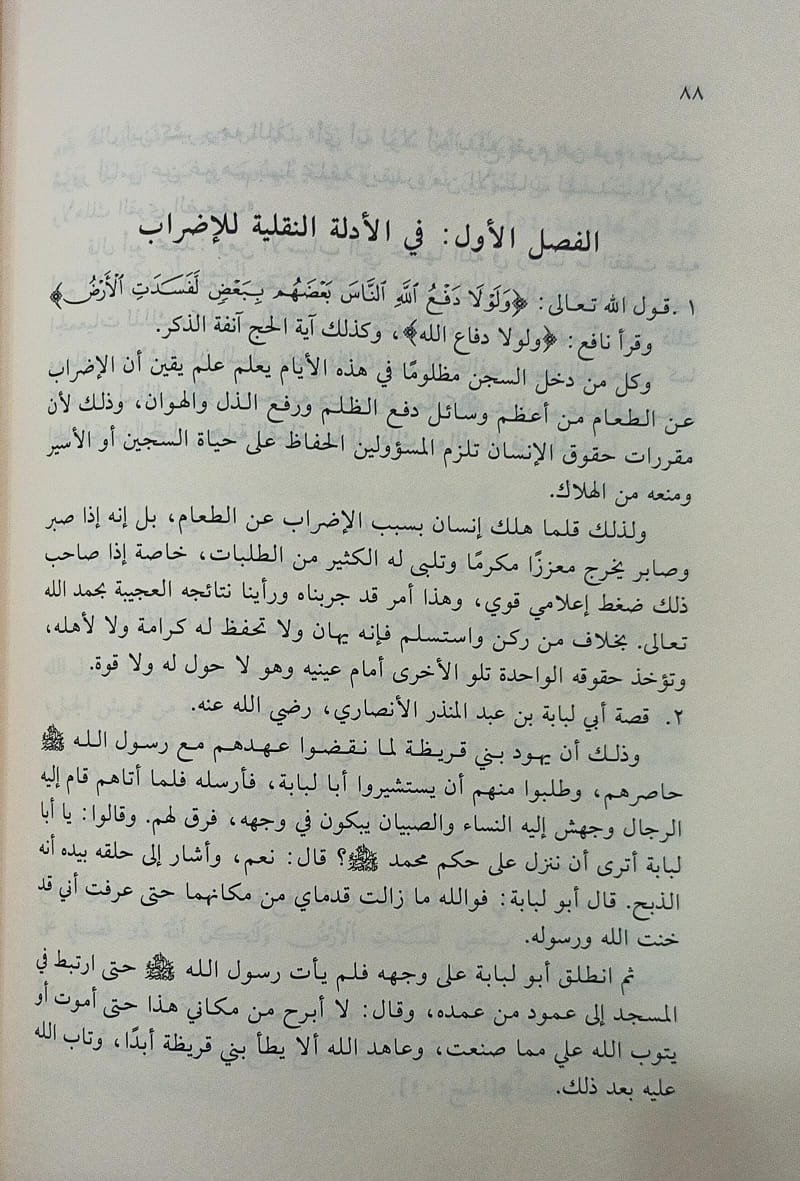 ٨٨
الفصل الأول: في الأدلة النقلية للإضراب
١ .قول الله تعالى: ﴿وَلَوْلَا دَفْعُ ٱللَّهِ ٱلنَّاسَ بَعْضَهُم بِبَعْضٍ لَّفَسَدَتِ ٱلْأَرْضُ﴾
وقرأ نافع: ﴿ولولا دفاع الله﴾، وكذلك آية الحج آنفة الذكر.
وكل من دخل السجن مظلومًا في هذه الأيام يعلم علم يقين أن الإضراب
عن الطعام من أعظم وسائل دفع الظلم ورفع الذل والهوان، وذلك لأن
مقررات حقوق الإنسان تلزم المسؤولين الحفاظ على حياة السجين أو الأسير
ومنعه من الهلاك.
ولذلك قلما هلك إنسان بسبب الإضراب عن الطعام، بل إنه إذا صبر
وصابر يخرج معززًا مكرمًا وتلبى له الكثير من الطلبات، خاصة إذا صاحب
ذلك ضغط إعلامي قوي، وهذا أمر قد جربناه ورأينا نتائجه العجيبة بحمد الله
تعالى. بخلاف من ركن واستسلم فإنه يهان ولا تحفظ له كرامة ولا لأهله،
وتؤخذ حقوقه الواحدة تلو الأخرى أمام عينيه وهو لا حول له ولا قوة.
٢. قصة أبي لبابة بن عبد المنذر الأنصاري، رضي الله عنه.
وذلك أن يهود بني قريظة لما نقضوا عهدهم مع رسول الله ﷺ
حاصرهم، وطلبوا منهم أن يستشيروا أبا لبابة، فأرسله فلما أتاهم قام إليه
الرجال وجهش إليه النساء والصبيان يبكون في وجهه، فرق لهم. وقالوا: يا أبا
لبابة أترى أن ننزل على حكم محمد ﷺ؟ قال: نعم، وأشار إلى حلقه بيده أنه
الذبح. قال أبو لبابة: فوالله ما زالت قدماي من مكانهما حتى عرفت أني قد
خنت الله ورسوله.
ثم انطلق أبو لبابة على وجهه فلم يأت رسول الله ﷺ حتى ارتبط في
المسجد إلى عمود من عمده، وقال: لا أبرح من مكاني هذا حتى أموت أو
يتوب الله علي مما صنعت، وعاهد الله ألا يطأ بني قريظة أبدًا، وتاب الله
عليه بعد ذلك.